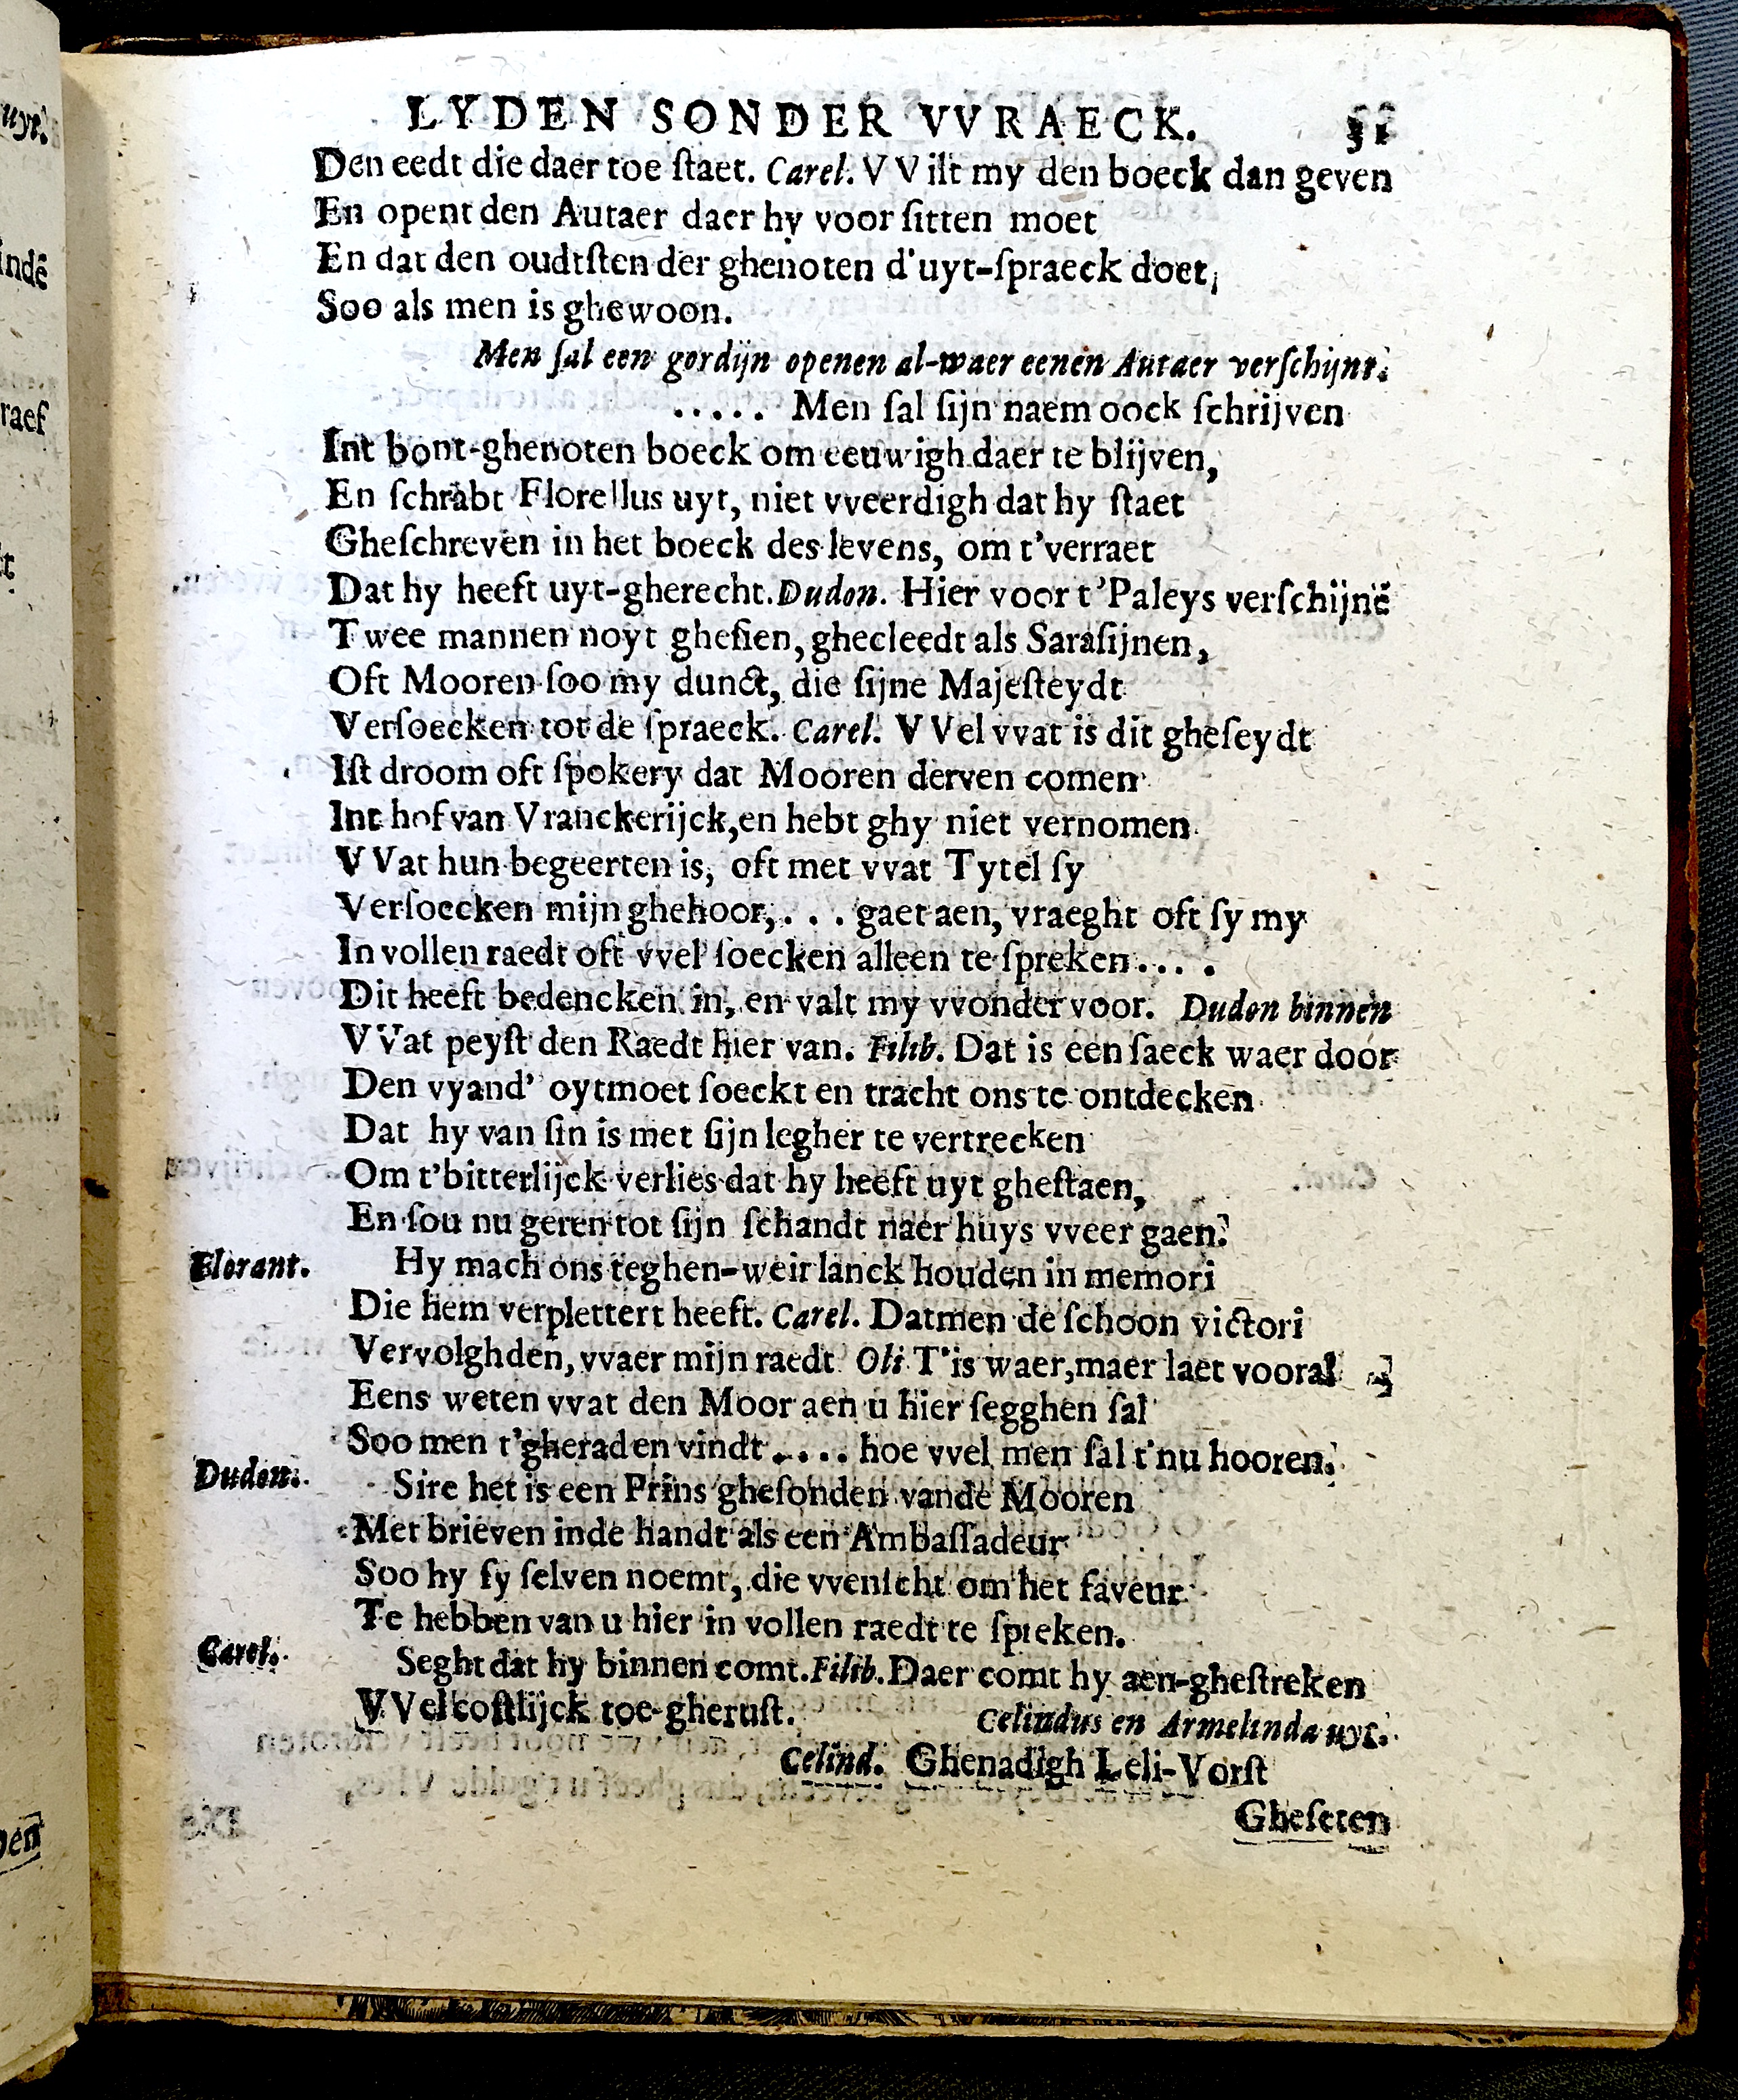 LYDEN SONDER VVRAECK. 51
Den eedt die daer toe ſtaet. Carel. VVilt my den boeck dan geven
En opent den Autaer daer hy voor ſitten moet
En dat den oudtſten der ghenoten d'uyt-ſpraeck doet,
Soo als men is ghewoon.
Men ſal een gordijn openen al-waer eenen Autaer verſchijnt.
..... Men ſal ſijn naem oock ſchrijven
Int bont-ghenoten boeck om eeuwigh daer te blijven,
En ſchrabt Florellus uyt, niet vveerdigh dat hy ſtaet
Gheſchreven in het boeck des levens, om t'verraet
Dat hy heeft uyt-gherecht. Dudon. Hier voor t'Paleys verſchijnē
Twee mannen noyt gheſien, ghecleedt als Saraſijnen,
Oft Mooren ſoo my dunct, die ſijne Majeſteydt
Verſoecken tot de ſpraeck. Carel. VVel vvat is dit gheſeydt
Iſt droom oft ſpokery dat Mooren derven comen
Int hof van Vranckerijck, en hebt ghy niet vernomen
VVat hun begeerten is, oft met vvat Tytel ſy
Verſoecken mijn ghehoor, . . . gaet aen, vraeght oft ſy my
In vollen raedt oft vvel ſoecken alleen te ſpreken. . . .
Dit heeft bedencken in, en valt my vvonder voor. Dudon binnen
VVat peyſt den Raedt hier van. Filib. Dat is een ſaeck waer door
Den vyand' oytmoet ſoeckt en tracht ons te ontdecken
Dat hy van ſin is met ſijn legher te vertrecken
Om t'bitterlijck verlies dat hy heeft uyt gheſtaen,
En ſou nu geren tot ſijn ſchandt naer huys vveer gaen.
Florant. Hy mach ons teghen-weir lanck houden in memori
Die hem verplettert heeft. Carel. Datmen de ſchoon victori
Vervolghden, vvaer mijn raedt. Oli. T'is waer, maer laet vooral
Eens weten vvat den Moor aen u hier ſegghen ſal
Soo men t'gheraden vindt .... hoe vvel men ſal t'nu hooren.
Dudon. Sire het is een Prins gheſonden vande Mooren
Met brieven inde handt als een Ambaſſadeur
Soo hy ſy ſelven noemt, die vvenſcht om het faveur
Te hebben van u hier in vollen raedt te ſpreken.
Carel. Seght dat hy binnen comt. Filib. Daer comt hy aen-gheſtreken
VVel coſtlijck toe-gheruſt. Celindus en Armelinda uyt.
Celind. Ghenadigh Leli-Vorſt
Gheſeten